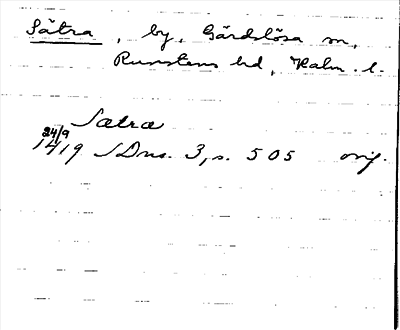 Sätra, by, Gärdslösa sn,
Runstens hd, Kalm. l.
Sætra
24/9
1419 SDns. 3, s. 505 orig.